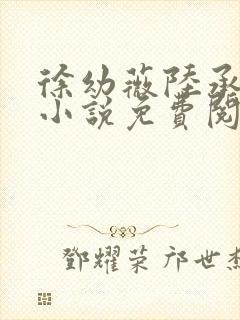 徐幼薇陸承
小說免費閱
鄧耀荣 邝世杰